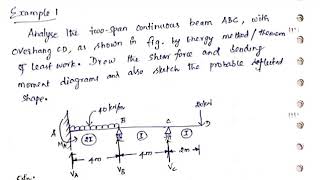 Example 1
Analyse the two-span continuous beam ABC, with
Overhang CD, as shown in fig. by Energy method/theorem
of least work. Draw the shear force and bending
moment diagrams and also sketch the probable deflected
shape.
40kN/m
20kN
A
B
C
D
MA
2I
I
I
4m
4m
2m
VA
VB
VC